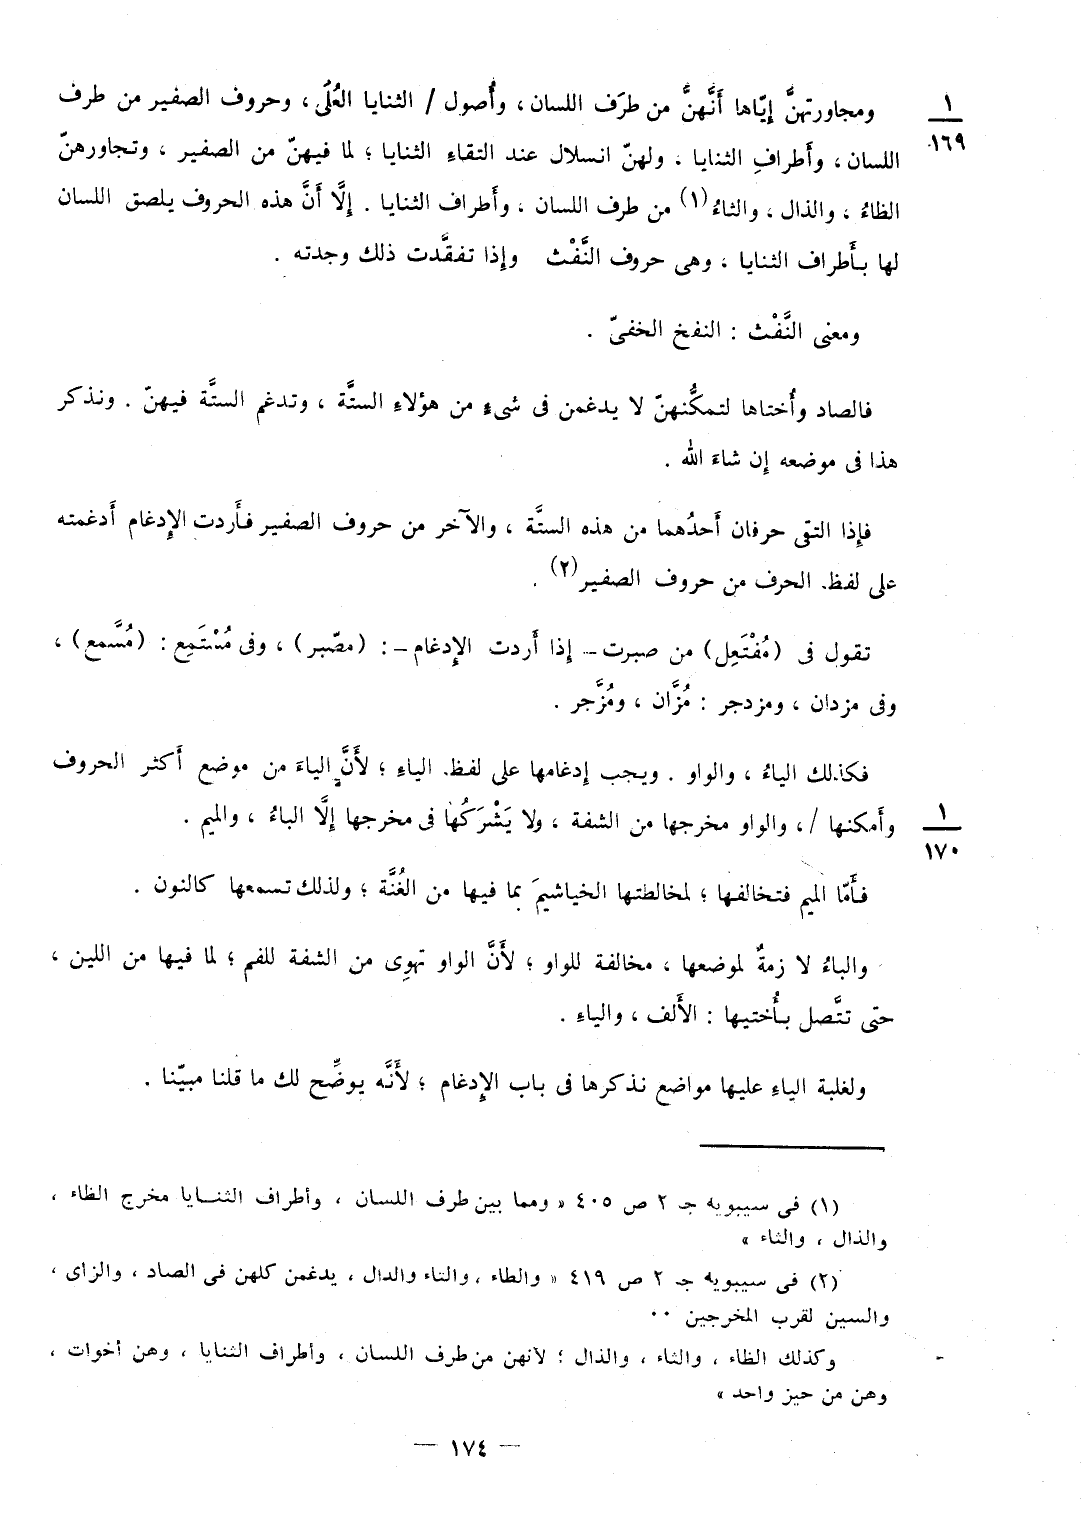 ومجاورتهنَّ إيّاها أَنَّهنَّ من طرَف اللسان ، وأُصول / الثنايا العُلَى ، وحروف الصفير من طرف
١
١٦٩
اللسان ، وأَطرافِ الثنايا . ولهنّ انسلال عند التقاءِ الثنايا ؛ لما فيهنّ من الصفير ، وتجاورهنّ
الظاءُ ، والذال ، والثاءُ (١) من طرف اللسان ، وأَطراف الثنايا . إلَّا أَنَّ هذه الحروف يلصق اللسان
لها بأَطراف الثنايا ، وهى حروف النَّفْث وإذا تفقَّدت ذلك وجدته .
ومعنى النَّفْث : النفخ الخفىّ .
فالصاد وأُختاها لتمكُّنهنّ لا يدغمن فى شىءٍ من هؤلاءِ الستَّة ، وتدغم الستَّة فيهنّ . ونذكر
هذا فى موضعه إن شاءَ الله .
فإذا التقى حرفان أَحدُهما من هذه الستَّة ، والآخر من حروف الصفير فأَردت الإدغام أَدغمته
على لفظ. الحرف من حروف الصفير (٢) .
تقول فى (مُفْتَعِل) من صبرت – إذا أَردت الإدغام – : (مصّبر) ، وفى مُسْتَمِع : (مُسَّمع) ،
وفى مزدان ، ومزدجر : مُزَّان ، ومُزَّجر .
فكذلك الياءُ ، والواو . ويجب إدغامها على لفظ. الياءِ ؛ لأَنَّ الياءَ من موضع أَكثر الحروف
وأَمكنها / ، والواو مخرجها من الشفة ، ولا يَشْرَكُها فى مخرجها إلَّا الباءُ ، والميم .
١
١٧٠
فأَمّا الميم فتخالفها ؛ لمخالطتها الخياشيمَ بما فيها من الغُنَّة ؛ ولذلك تسمعها كالنون .
والباءُ لا زمةٌ لموضعها ، مخالفة للواو ؛ لأَنَّ الواو تهوِى من الشفة للفم ؛ لما فيها من اللين ،
حتى تتَّصل بأُختيها : الأَلف ، والياءِ .
ولغلبة الياءِ عليها مواضع نذكرها فى باب الإدغام ؛ لأَنَّه يوضِّح لك ما قلنا مبيّنا .
(١) فى سيبويه جـ ٢ ص ٤٠٥ « ومما بين طرف اللسان ، وأطراف الثنايا مخرج الظاء ،
والذال ، والثاء »
(٢) فى سيبويه جـ ٢ ص ٤١٩ « والطاء ، والتاء والدال ، يدغمن كلهن فى الصاد ، والزاى ،
والسين لقرب المخرجين ٠٠
وكذلك الظاء ، والثاء ، والذال ؛ لأنهن من طرف اللسان ، وأطراف الثنايا ، وهن أخوات ،
وهن من حيز واحد »
— ١٧٤ —